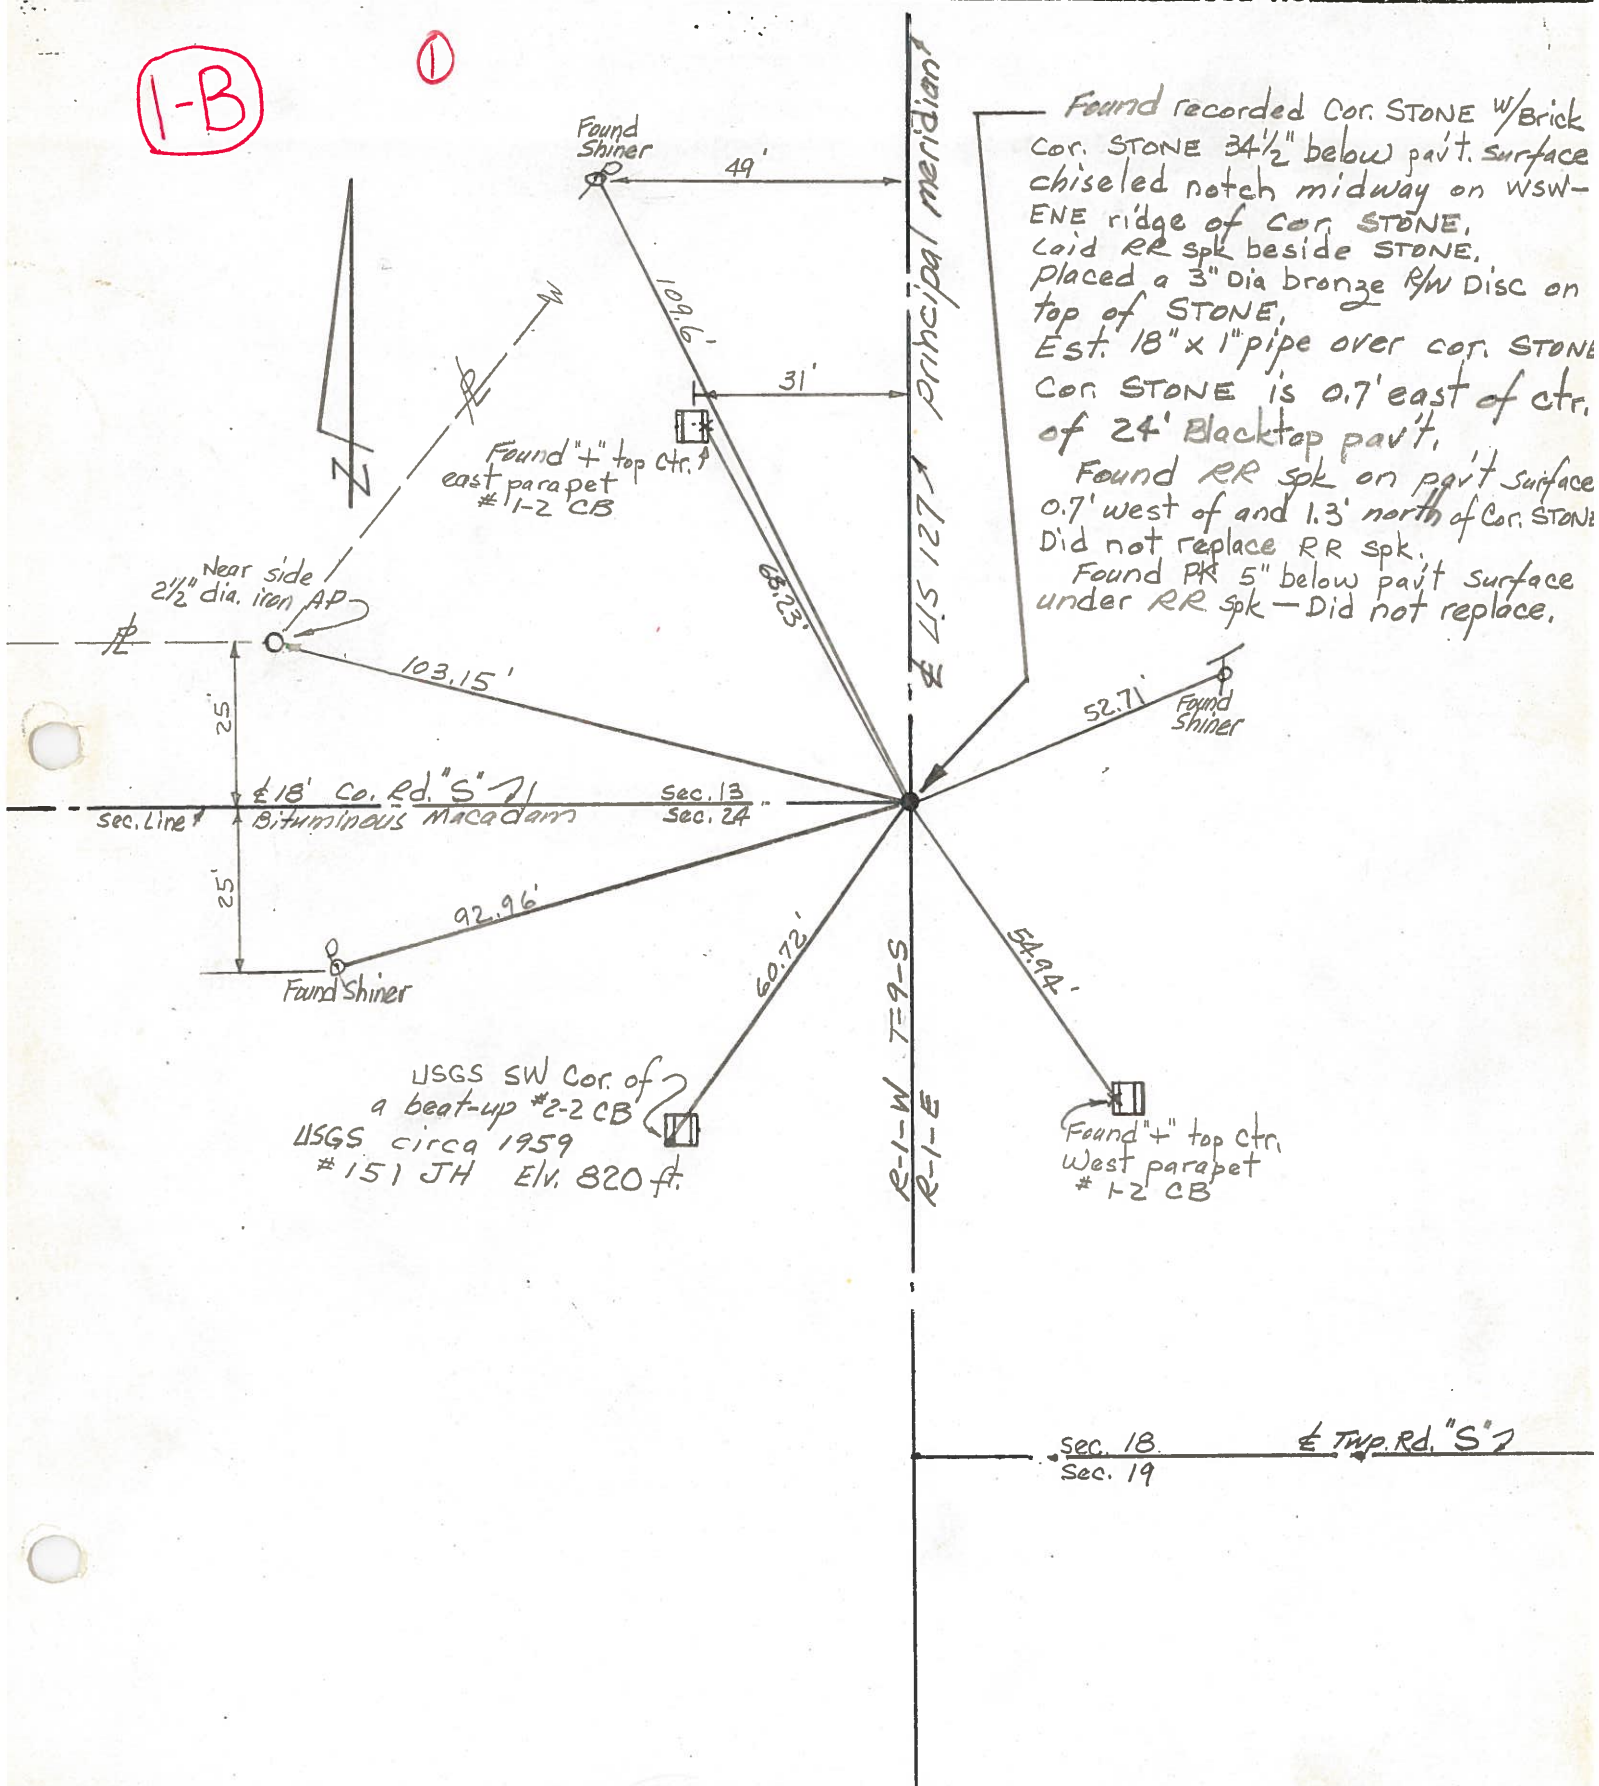 1-B
1
Found
Shiner
49'
Found recorded Cor. STONE W/Brick
Cor. STONE 34½" below pav't. surface
chiseled notch midway on WSW-
ENE ridge of Cor. STONE.
Laid RR spk beside STONE.
Placed a 3" Dia bronze R/W Disc on
top of STONE.
Est. 18" x 1" pipe over cor. STONE
Cor. STONE is 0.7' east of ctr.
of 24' Blacktop pav't.
Found RR spk on pav't surface
0.7' west of and 1.3' north of Cor. STONE
Did not replace RR spk.
Found PK 5" below pav't surface
under RR spk — Did not replace.
℄ US 127 principal meridian
109.6'
31'
N
Found "+" top ctr.
east parapet
# 1-2 CB
68.23'
Near side
2½" dia. iron AP
103.15'
52.71'
Found
Shiner
25'
℄ 18' Co. Rd. "S"
Sec. Line
Bituminous Macadam
Sec. 13
Sec. 24
25'
92.96'
Found Shiner
60.72'
54.94'
R-1-W T=9-S
R-1-E
USGS SW Cor. of
a beat-up #2-2 CB
USGS circa 1959
# 151 JH Elv. 820 ft.
Found "+" top ctr.
West parapet
# 1-2 CB
Sec. 18
℄ Twp. Rd. "S"
Sec. 19